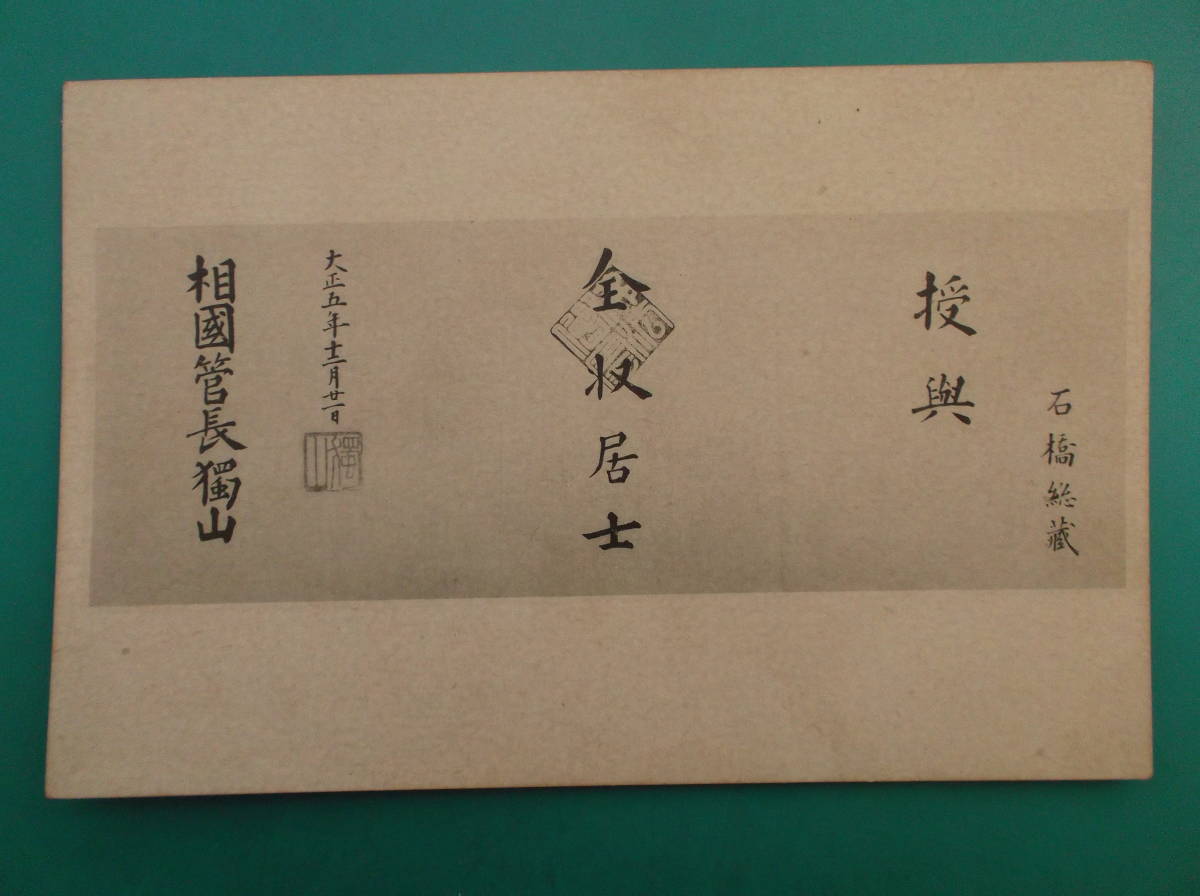 石橋総藏
授與
全收居士
大正五年十二月廿一日
獨山
相國管長獨山